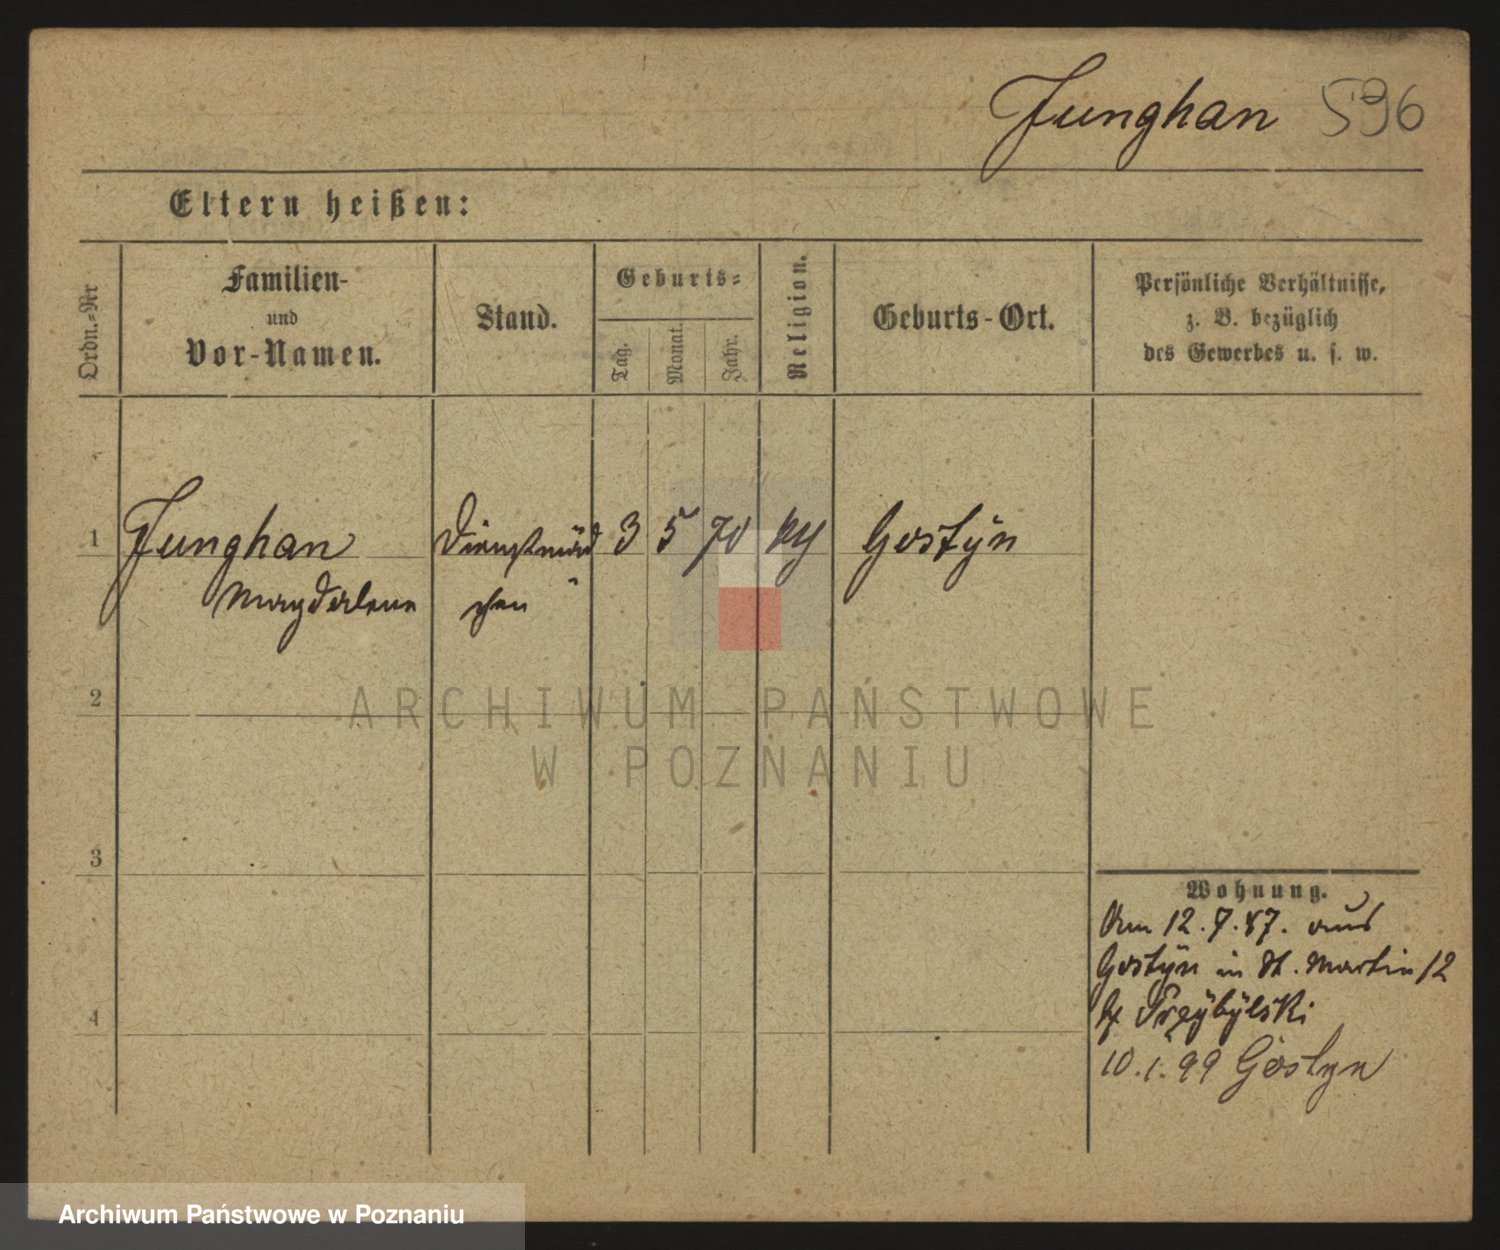 Junghan 596
Eltern heißen:
Ordn.-Nr
Familien-
und
Vor-Namen.
Stand.
Geburts-
Tag.
Monat.
Jahr.
Religion.
Geburts-Ort.
Persönliche Verhältnisse,
z. B. bezüglich
des Gewerbes u. s. w.
1 Junghan Dienstmäd 3 5 70 Gostyn
Magdalena chen
2
3
4
Wohnung.
Am 12.7.87. aus
Gostyn in St. Martin 12
10.1.99 Gostyn
ARCHIWUM PAŃSTWOWE
W POZNANIU
Archiwum Państwowe w Poznaniu